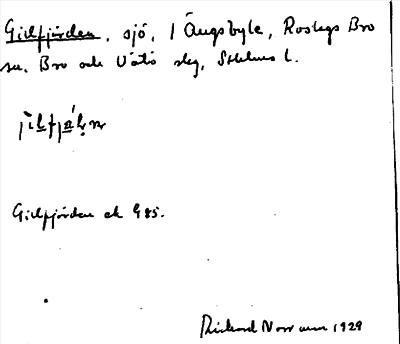 Gillfjärden, sjö, i Ängsbyle, Roslags Bro
sn, Bro och Vätö slg, Sthlms l.
Gillfjärden ek G 85.
Rickard Norrman 1929